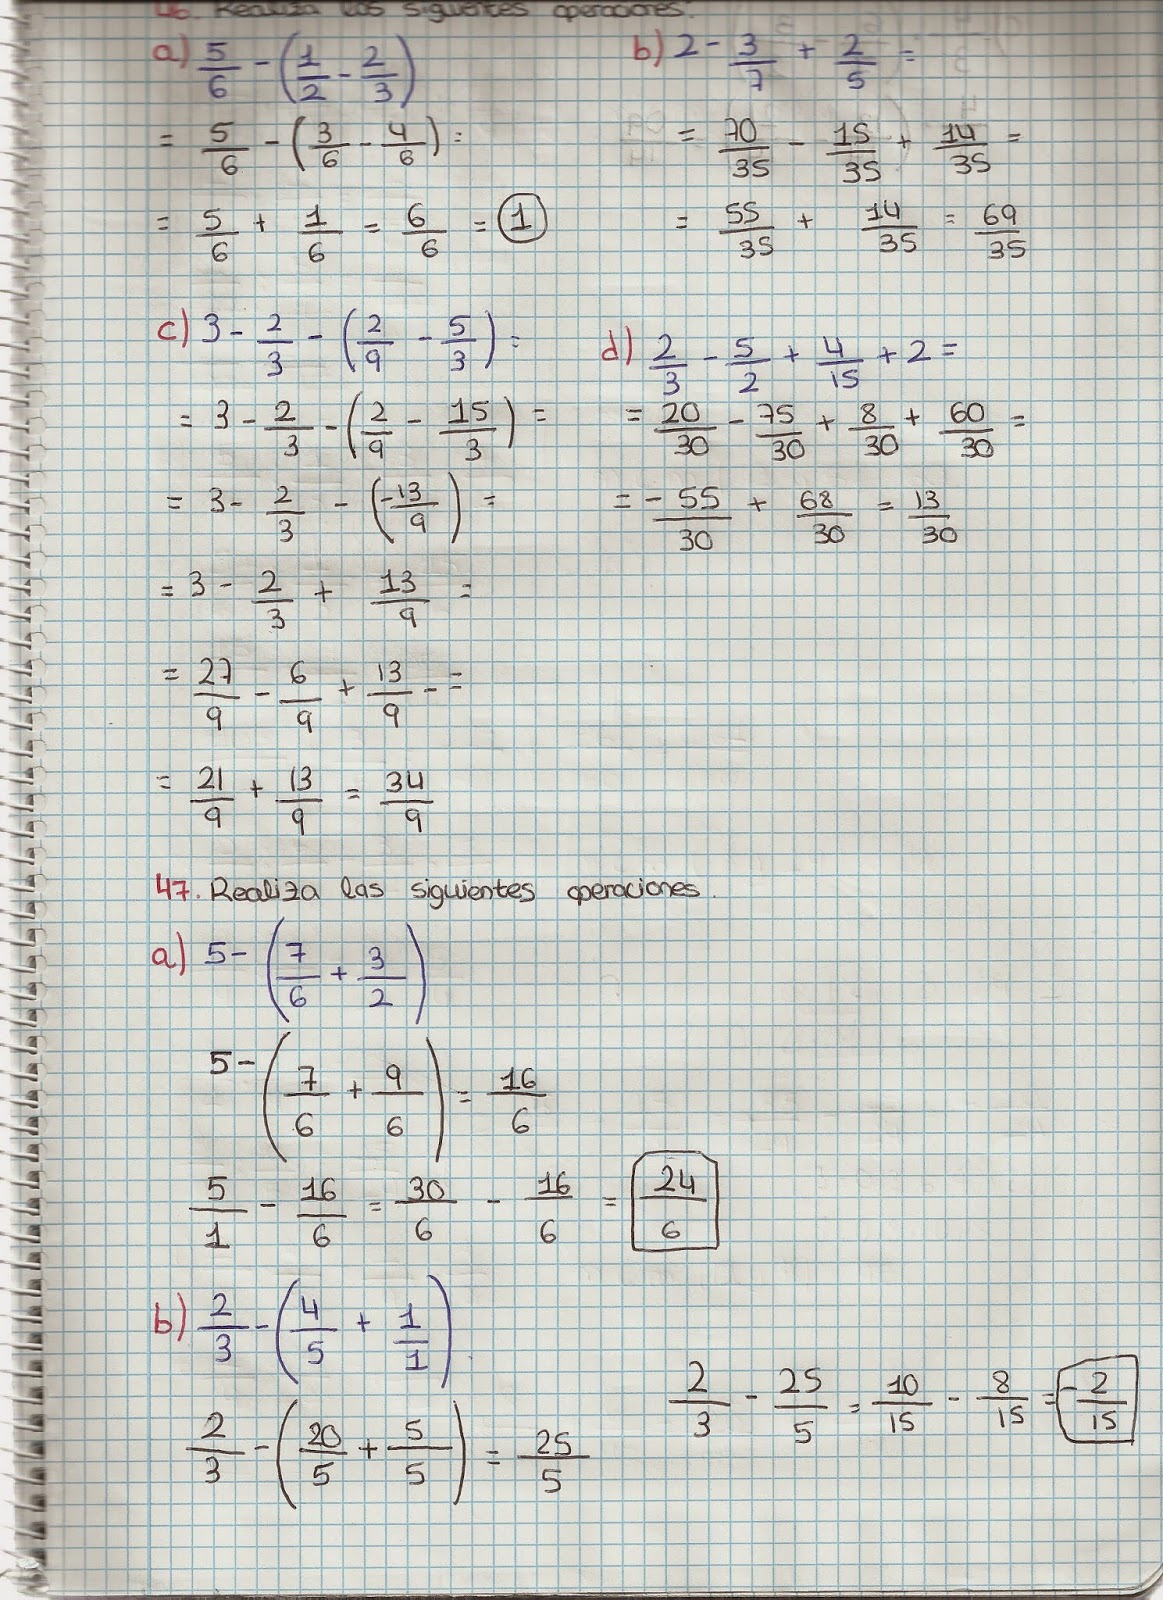 46. Realiza las siguientes operaciones.
a) 5/6 - (1/2 - 2/3)
= 5/6 - (3/6 - 4/6) =
= 5/6 + 1/6 = 6/6 = 1
b) 2 - 3/7 + 2/5 =
= 70/35 - 15/35 + 14/35 =
= 55/35 + 14/35 = 69/35
c) 3 - 2/3 - (2/9 - 5/3) =
= 3 - 2/3 - (2/9 - 15/3) =
= 3 - 2/3 - (-13/9) =
= 3 - 2/3 + 13/9 =
= 27/9 - 6/9 + 13/9 - =
= 21/9 + 13/9 = 34/9
d) 2/3 - 5/2 + 4/15 + 2 =
= 20/30 - 75/30 + 8/30 + 60/30 =
= -55/30 + 68/30 = 13/30
47. Realiza las siguientes operaciones.
a) 5 - (7/6 + 3/2)
5 - (7/6 + 9/6) = 16/6
5/1 - 16/6 = 30/6 - 16/6 = 24/6
b) 2/3 - (4/5 + 1/1)
2/3 - (20/5 + 5/5) = 25/5
2/3 - 25/5 = 10/15 - 8/15 = -2/15